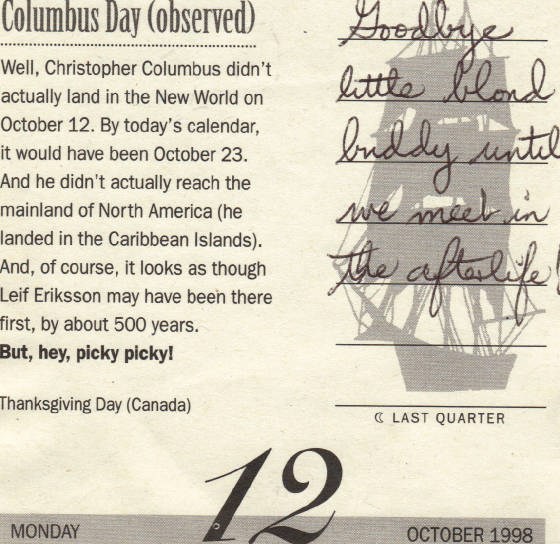 Columbus Day (observed)
Well, Christopher Columbus didn't
actually land in the New World on
October 12. By today's calendar,
it would have been October 23.
And he didn't actually reach the
mainland of North America (he
landed in the Caribbean Islands).
And, of course, it looks as though
Leif Eriksson may have been there
first, by about 500 years.
But, hey, picky picky!
Thanksgiving Day (Canada)
Goodbye
little blond
buddy until
we meet in
the afterlife!
☾ LAST QUARTER
12
MONDAY
OCTOBER 1998